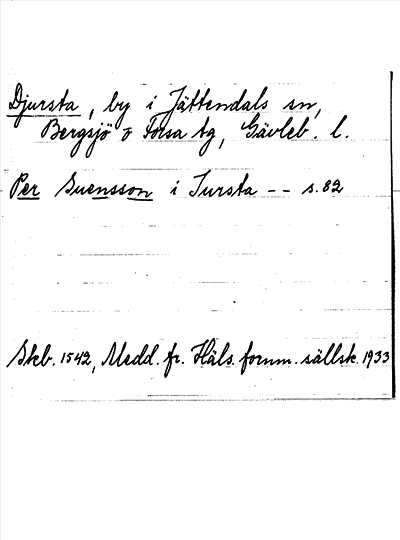 Djursta, by i Jättendals sn,
Bergsjö o Forsa tg, Gävleb. l.
Per Suensson i Jursta -- s. 82
Skb. 1542, Medd. fr. Häls. fornm. sällsk. 1933